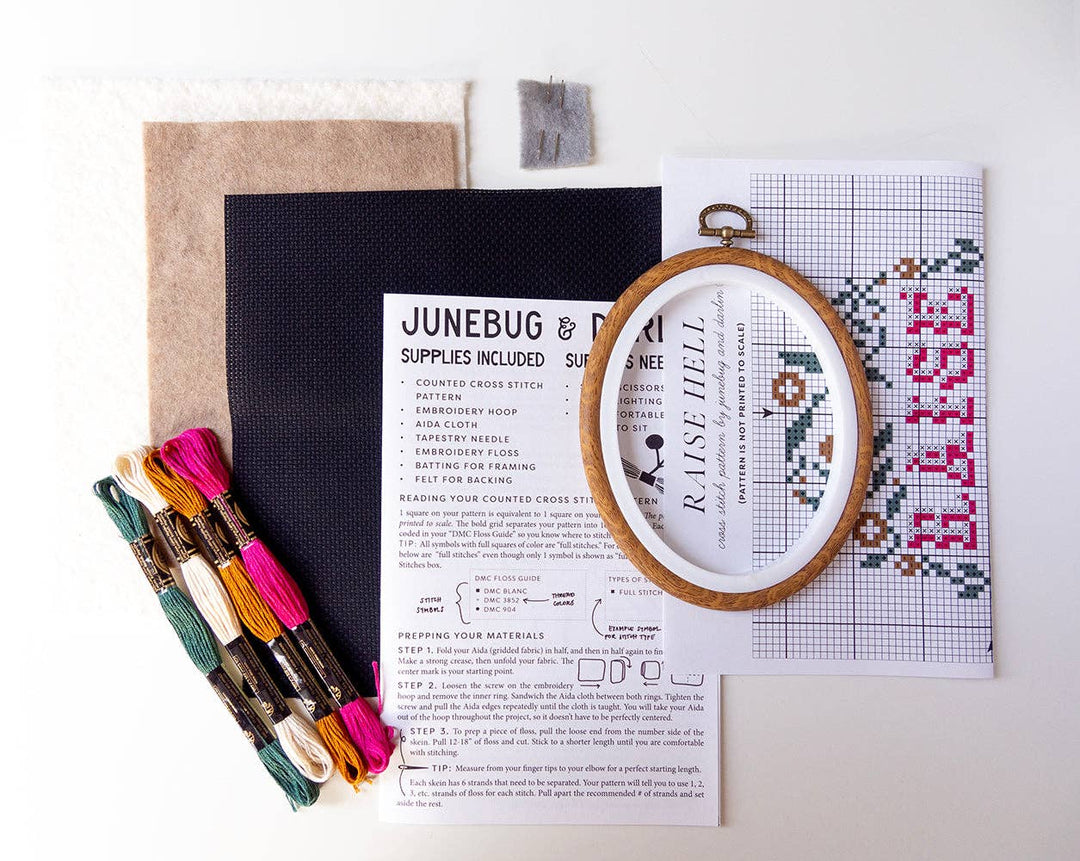 JUNEBUG &
SUPPLIES INCLUDED
• COUNTED CROSS STITCH
PATTERN
• EMBROIDERY HOOP
• AIDA CLOTH
• TAPESTRY NEEDLE
• EMBROIDERY FLOSS
• BATTING FOR FRAMING
• FELT FOR BACKING
SCISSORS
TO SIT
READING YOUR COUNTED CROSS
1 square on your pattern is equivalent to 1 square on your
printed to scale. The bold grid separates your pattern into
coded in your "DMC Floss Guide" so you know where to stitch
TIP: All symbols with full squares of color are "full stitches."
below are "full stitches" even though only 1 symbol is shown as
Stitches box.
DMC FLOSS GUIDE
■ DMC BLANC
DMC 3852
■ DMC 904
STITCH
SYMBOLS
THREAD
COLORS
TYPES OF
■ FULL STITCH
EXAMPLE SYMBOL
FOR STITCH TYPE
PREPPING YOUR MATERIALS
STEP 1. Fold your Aida (gridded fabric) in half, and then in half again to
Make a strong crease, then unfold your fabric. The
center mark is your starting point.
STEP 2. Loosen the screw on the embroidery
hoop and remove the inner ring. Sandwich the Aida cloth between both rings. Tighten the
screw and pull the Aida edges repeatedly until the cloth is taught. You will take your Aida
out of the hoop throughout the project, so it doesn't have to be perfectly centered.
STEP 3. To prep a piece of floss, pull the loose end from the number side of the
skein. Pull 12-18" of floss and cut. Stick to a shorter length until you are comfortable
with stitching.
TIP: Measure from your finger tips to your elbow for a perfect starting length.
Each skein has 6 strands that need to be separated. Your pattern will tell you to use 1, 2,
3, etc. strands of floss for each stitch. Pull apart the recommended # of strands and set
aside the rest.
RAISE HELL
cross stitch pattern by junebug and darlin
(PATTERN IS NOT PRINTED TO SCALE)
RAISE